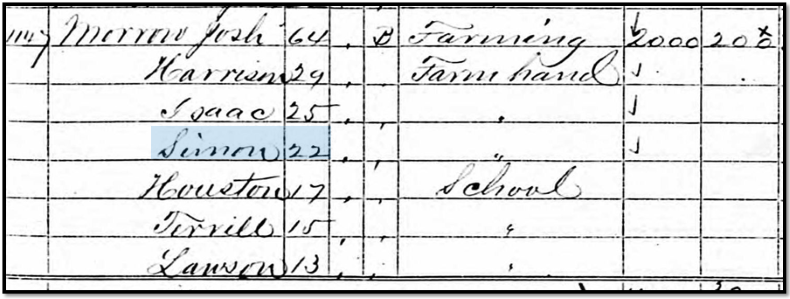 1147 Morrow Josh 64 , B Farming 2000 200
Harrison 29 , , Farm hand
Isaac 25 , , "
Simon 22 , , "
Houston 17 , , School
Terrill 15 , , "
Lawson 13 , , "